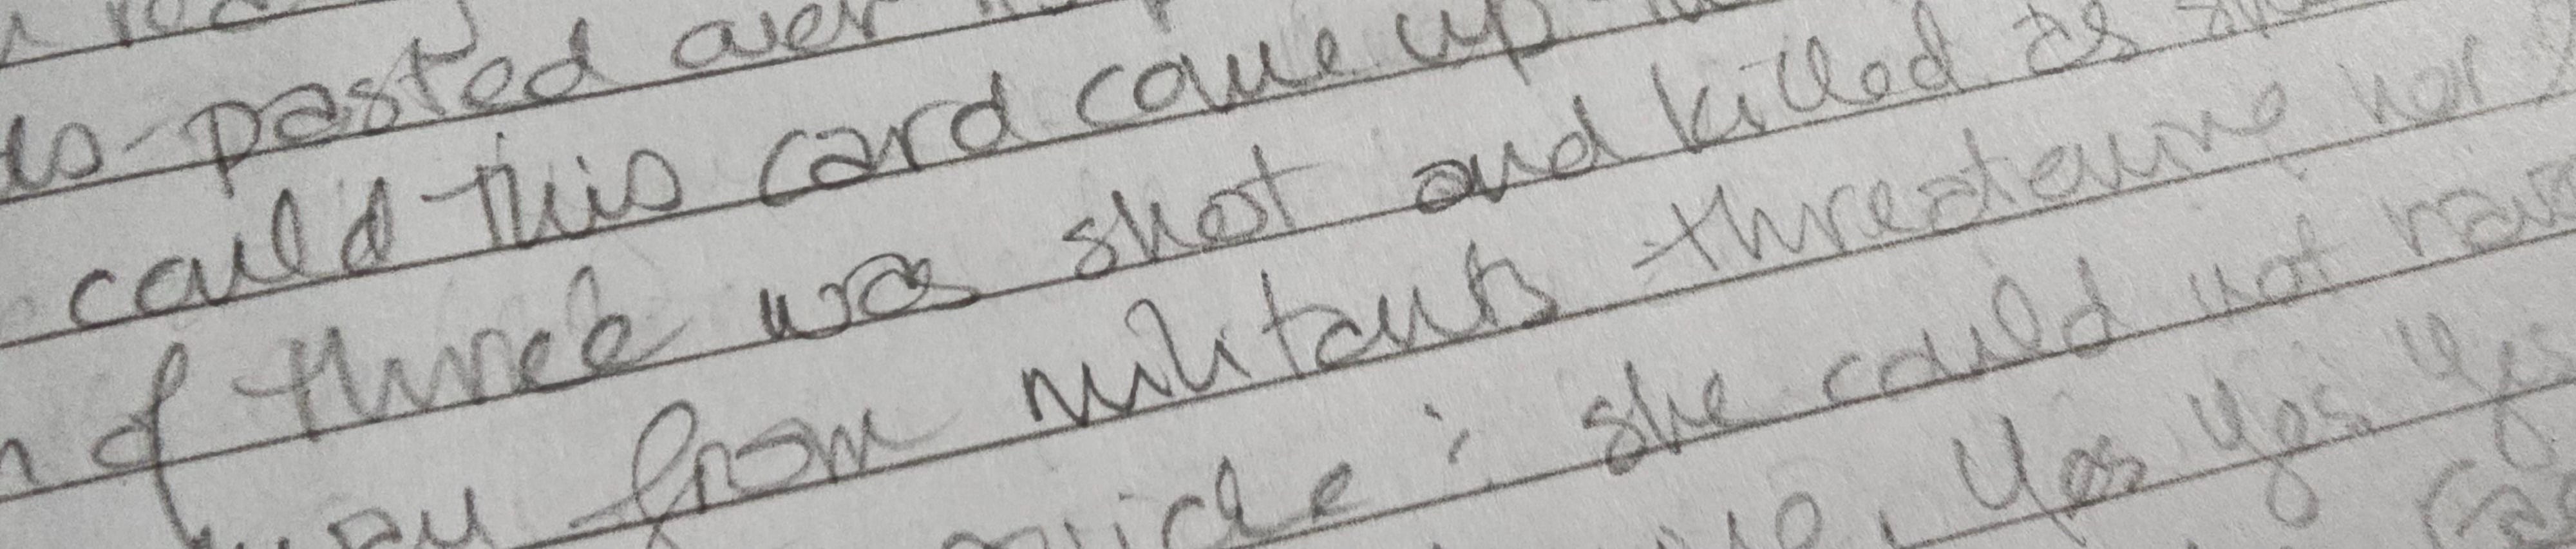 pasted over
could this card come up
of three was shot and killed as
from militants threatening her
she could not
Yes Yes Yes